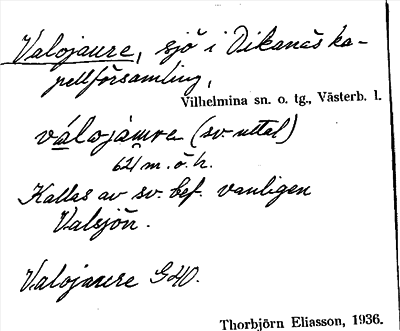 Valojaure, sjö i Dikanäs ka-
pellförsamling,
Vilhelmina sn. o. tg., Västerb. l.
válojàu̯re (sv. uttal)
621 m. ö. h.
Kallas av sv. bef. vanligen
Valsjön.
Valojaure G40.
Thorbjörn Eliasson, 1936.